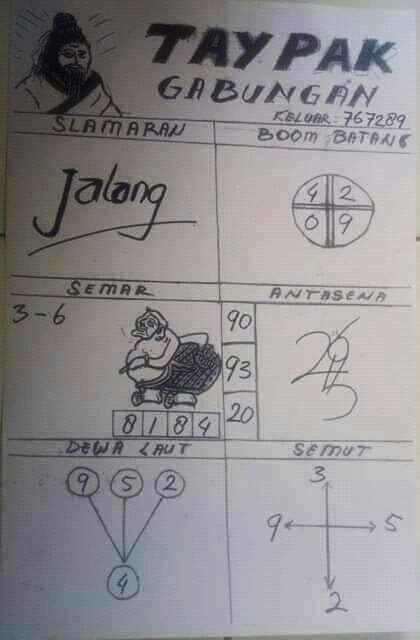 TAYPAK
GABUNGAN
KELUAR: 767289
SLAMARAN
BOOM BATANG
Jalang
4 2
0 9
SEMAR
ANTASENA
3-6
90
93
20
8 1 8 4
DEWA LAUT
SEMUT
9 5 2
4
3
9 5
2